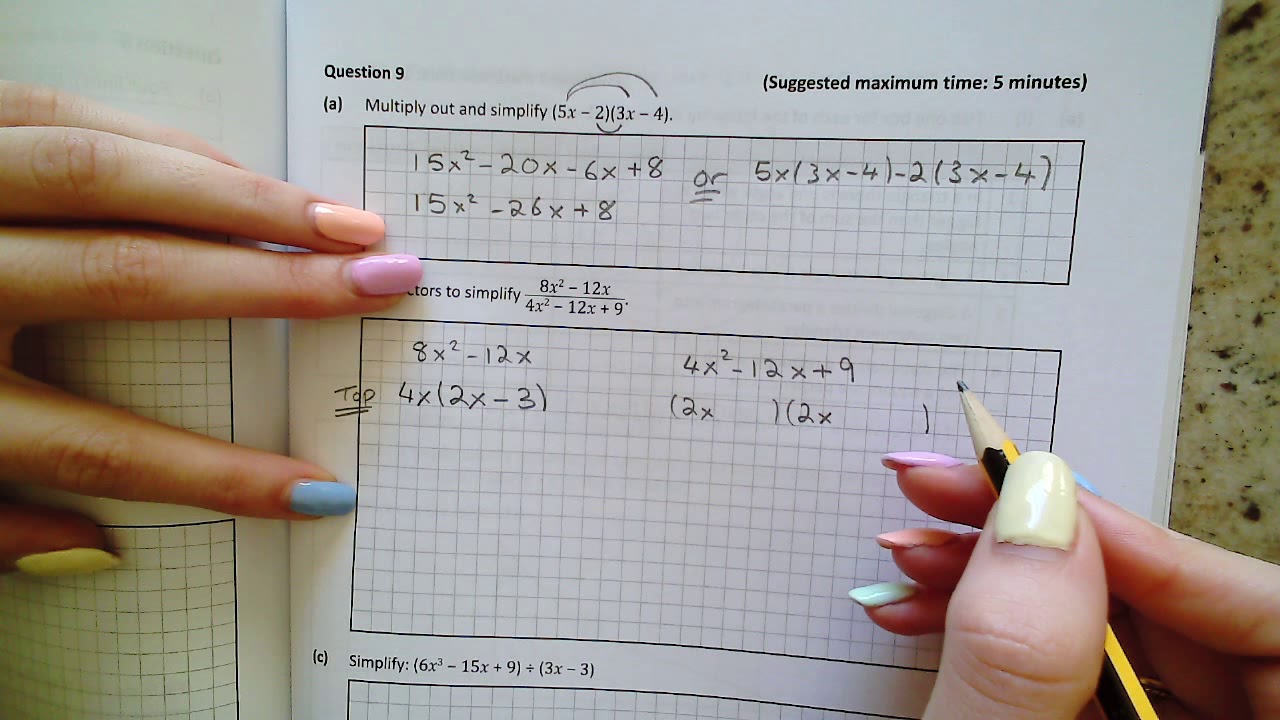 Question 9
(Suggested maximum time: 5 minutes)
(a) Multiply out and simplify (5x − 2)(3x − 4).
15x² − 20x − 6x + 8 or 5x(3x − 4) − 2(3x − 4)
15x² − 26x + 8
ctors to simplify (8x² − 12x)/(4x² − 12x + 9).
8x² − 12x 4x² − 12x + 9
Top 4x(2x − 3) (2x )(2x )
(c) Simplify: (6x³ − 15x + 9) ÷ (3x − 3)